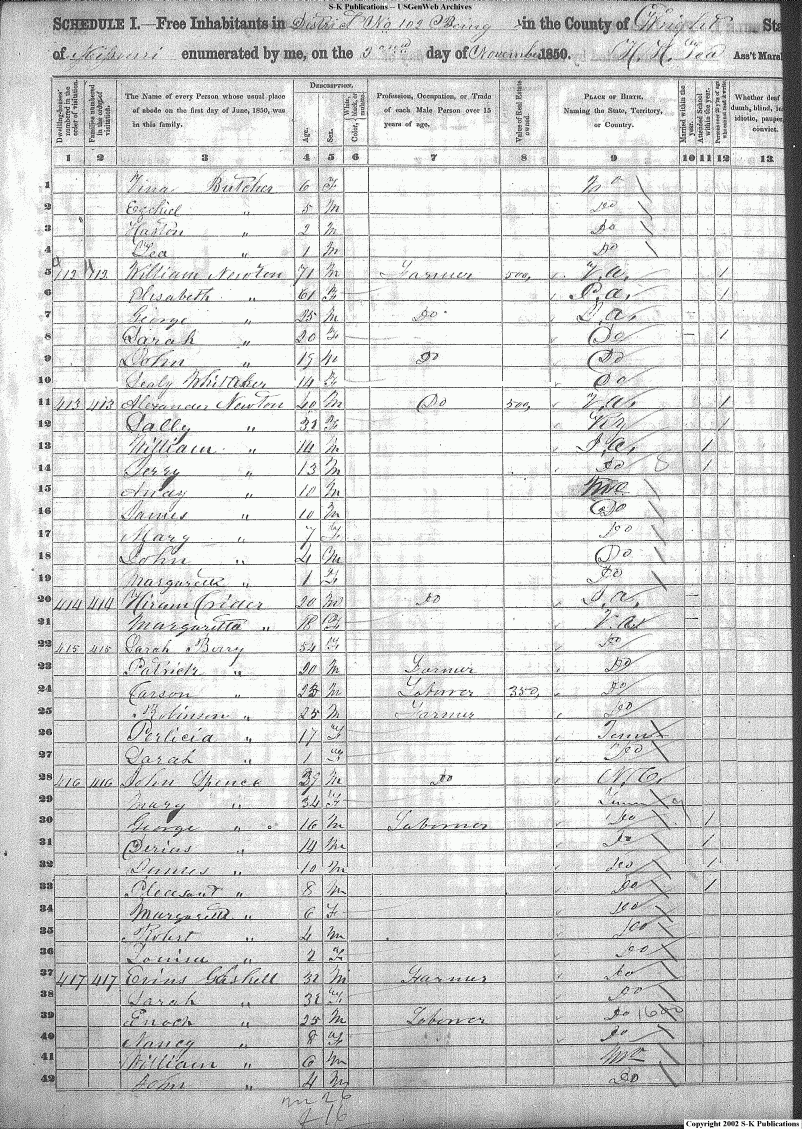 S-K Publications -- USGenWeb Archives
SCHEDULE I.—Free Inhabitants in District No 102 Being in the County of Wright State
of Missouri enumerated by me, on the 22nd day of November 1850. Ass't Marshal
Dwelling-houses numbered in the order of visitation.
Families numbered in the order of visitation.
The Name of every Person whose usual place of abode on the first day of June, 1850, was in this family.
DESCRIPTION.
Age.
Sex.
White, black, or mulatto.
Color,
Profession, Occupation, or Trade of each Male Person over 15 years of age.
Value of Real Estate owned.
PLACE OF BIRTH.
Naming the State, Territory, or Country.
Married within the year.
Attended School within the year.
Persons over 20 y'rs of age who cannot read & write.
Whether deaf dumb, blind, idiotic, pauper, convict.
1 2 3 4 5 6 7 8 9 10 11 12 13
1 Butcher 6 F Mo
2 Ezekiel " 5 M Do
3 " 2 M Do
4 " 1 M Do
5 412 412 William Newton 71 M Farmer 500, Va. 1
6 Elisabeth " 61 F Pa. 1
7 George " 25 M Do
8 Sarah " 20 F Do 1
9 John " 19 M Do Do
10 Whittaker 14 F Do
11 413 413 Alexander Newton 40 M Do 500, Va. 1
12 Sally " 32 F Ky 1
13 William " 14 M 1
14 " 13 M Do 8 1
15 Anay " 10 M Mo
16 James " 10 M Do
17 Mary " 7 F Do
18 John " 4 M Do
19 Margarette " 1 F Do
20 414 414 Hiram Crider 20 M Do
21 Margaretta " 18 F Va.
22 415 415 Sarah Berry 54 F Do
23 Patrick " 20 M Farmer Do
24 Carson " 23 M Laborer 350, Do
25 Robinson " 25 M Farmer Do
26 Perlicia " 17 F Tenn
27 Sarah " 1 F Do
28 416 416 John Spence 39 M Do N.C.
29 Mary " 34 F Tenn
30 George " 16 M Laborer Do 1
31 " 14 M Do 1
32 James " 10 M Do 1
33 Pleasant " 8 M Do 1
34 Margarett " 6 F Do
35 Robert " 4 M Do
36 Louisa " 2 F Do
37 417 417 Gaskell 32 M Farmer Do
38 Sarah " 32 F Do
39 Enoch " 25 M Laborer Do
40 Nancy " 8 F Do
41 William " 6 M Mo
42 John " 4 M Do
m 26
f 16
Copyright 2002 S-K Publications